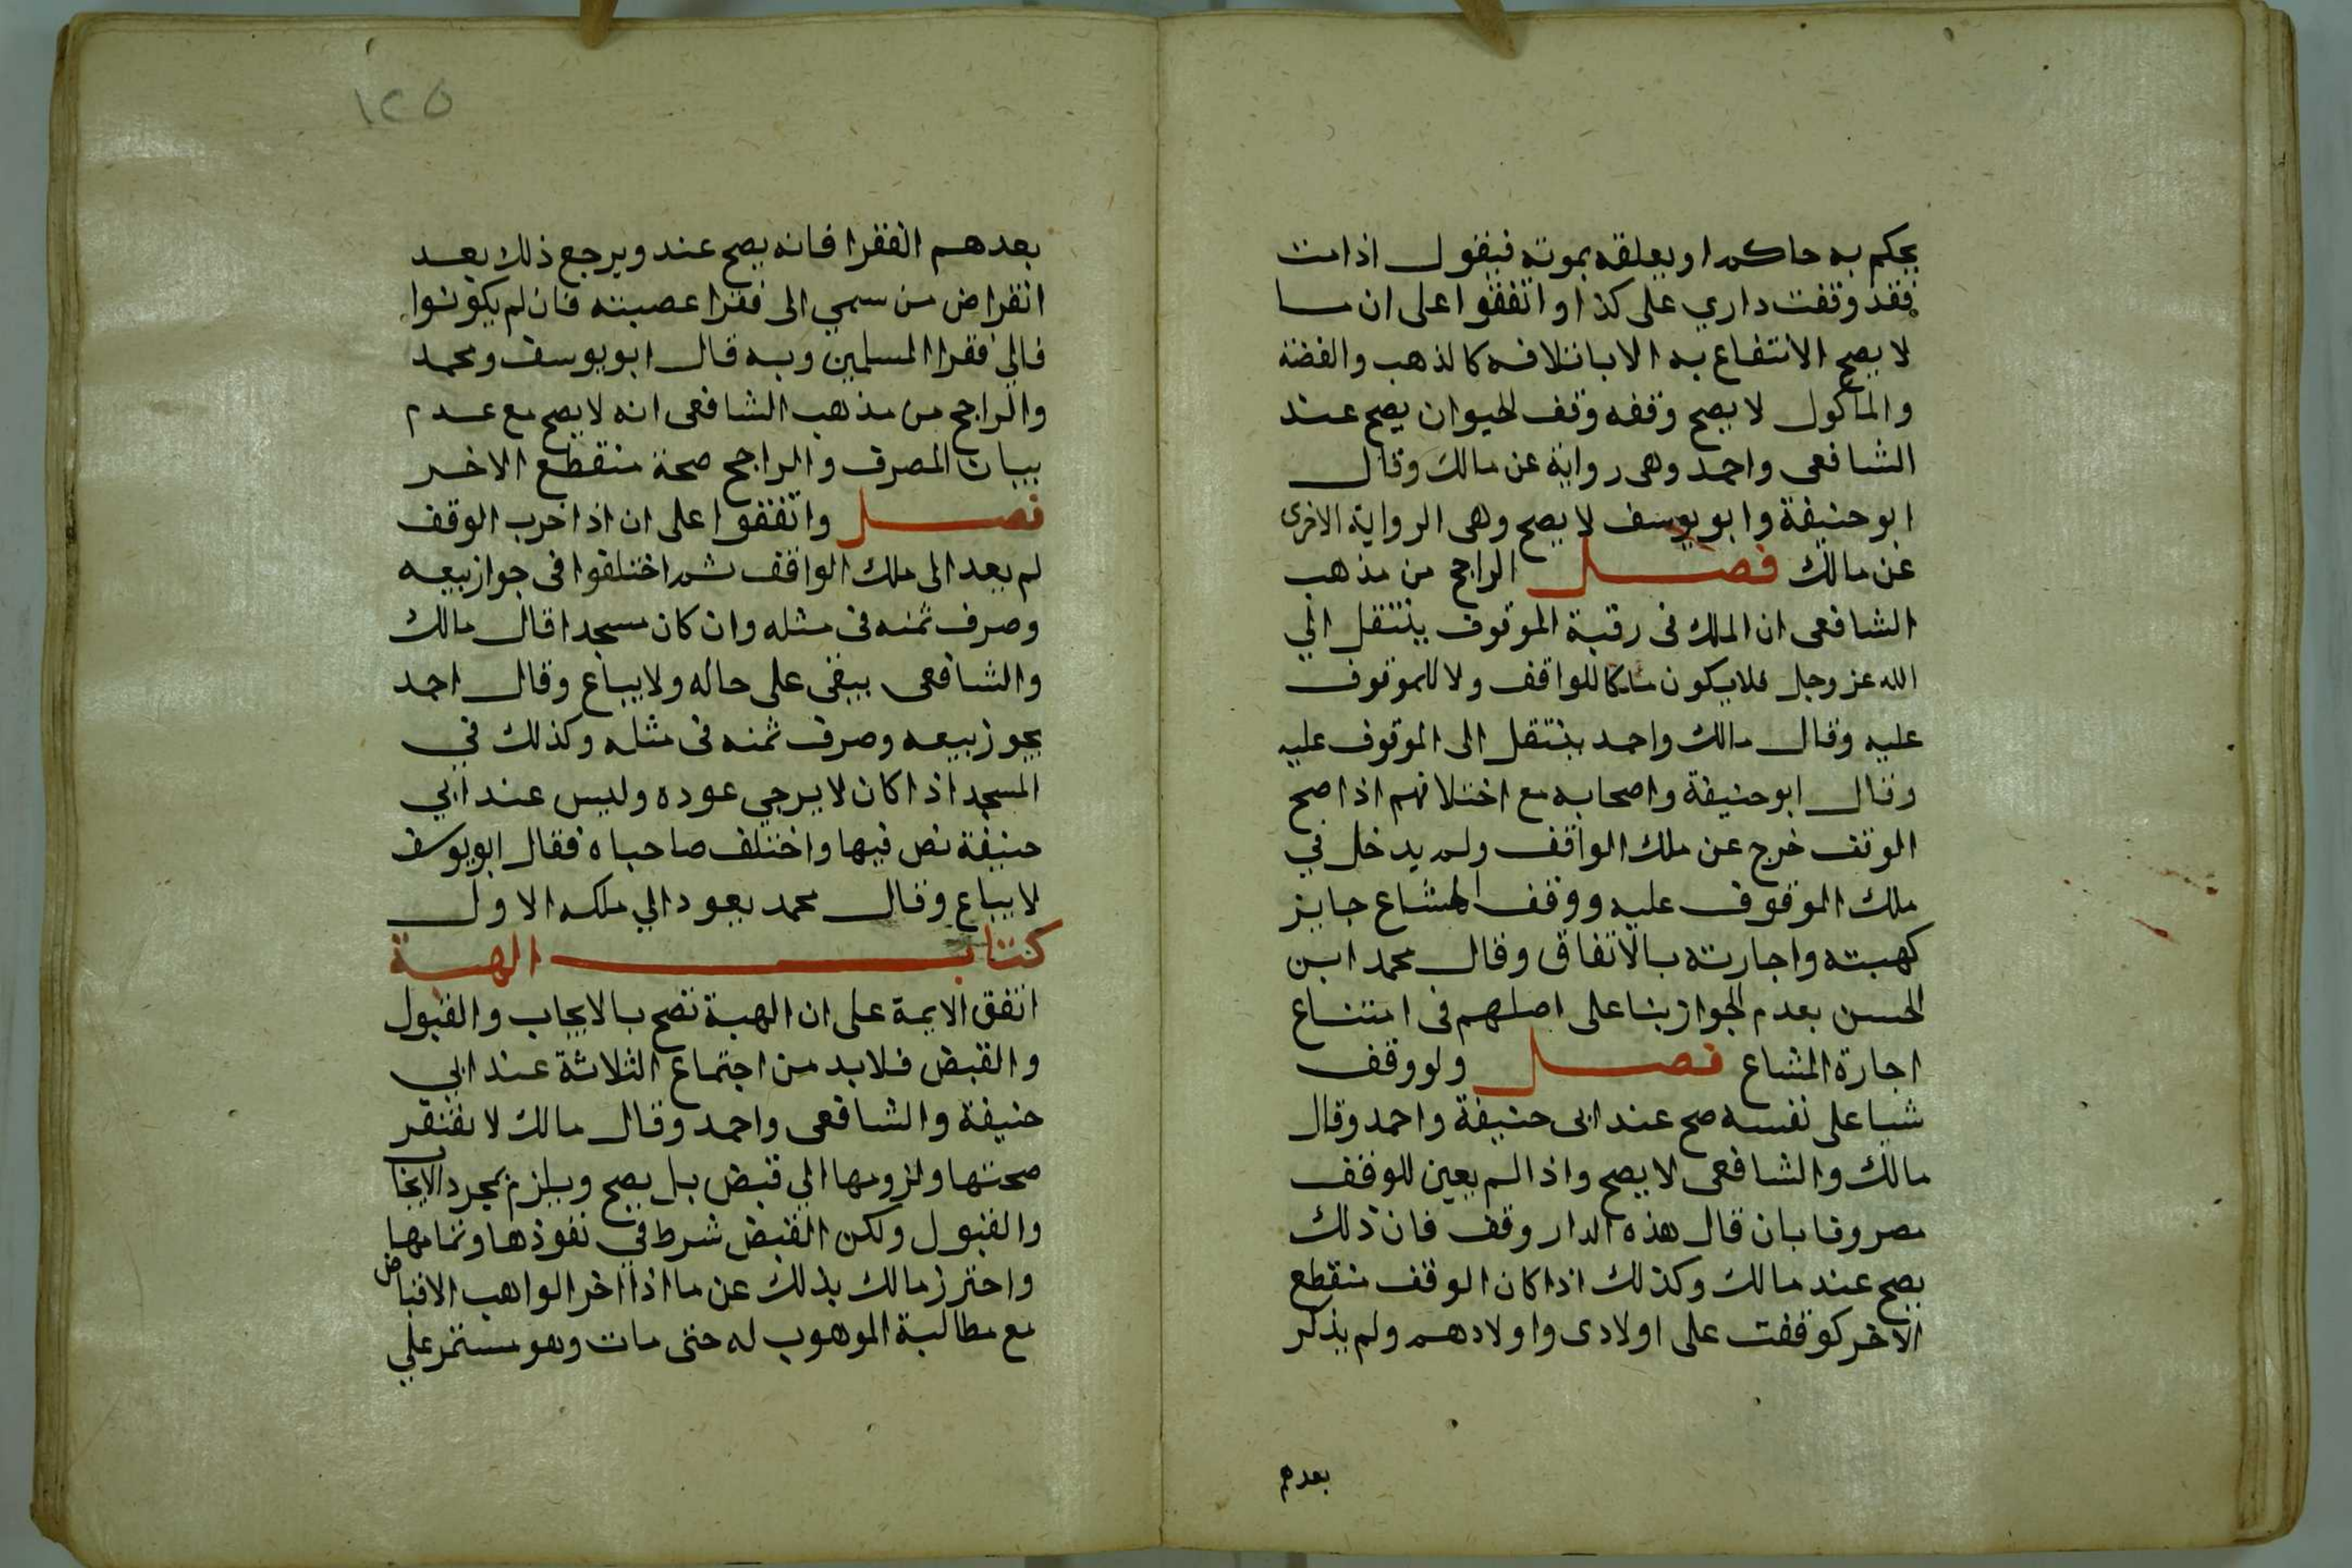 يحكم به حاكم او يعلقه بموته فيقول اذا مت
فقد وقفت داري على كذا واتفقوا على ان ما
لا يصح الانتفاع به الا باتلافه كالذهب والفضة
والماكول لا يصح وقفه وقف الحيوان يصح عند
الشافعى واحمد وهى رواية عن مالك وقال
ابو حنيفة وابو يوسف لا يصح وهى الرواية الاخرى
عن مالك فصل الراجح من مذهب
الشافعى ان الملك فى رقبة الموقوف ينتقل الي
الله عز وجل فلا يكون مالكا للواقف ولا للموقوف
عليه وقال مالك واحمد ينتقل الى الموقوف عليه
وقال ابو حنيفة واصحابه مع اختلافهم اذا صح
الوقف خرج عن ملك الواقف ولم يدخل في
ملك الموقوف عليه ووقف المشاع جايز
كهبته واجارته بالاتفاق وقال محمد ابن
الحسن بعدم الجواز بنا على اصلهم فى امتناع
اجارة المشاع فصل ولو وقف
شيا على نفسه صح عند ابى حنيفة واحمد وقال
مالك والشافعى لا يصح واذا لم يعين للوقف
مصروفا بان قال هذه الدار وقف فان ذلك
يصح عند مالك وكذلك اذا كان الوقف منقطع
الاخر كوقفت على اولادى واولادهم ولم يذكر
بعدهم
١٢٥
بعدهم الفقرا فانه يصح عند ويرجع ذلك بعد
انقراض من سمي الى فقرا عصبته فان لم يكونوا
فالي فقرا المسلمين وبه قال ابو يوسف ومحمد
والراجح من مذهب الشافعى انه لا يصح مع عدم
بيان المصرف والراجح صحة منقطع الاخر
فصل واتفقوا على ان اذا خرب الوقف
لم يعد الى ملك الواقف ثم اختلفوا فى جواز بيعه
وصرف ثمنه فى مثله وان كان مسجدا قال مالك
والشافعى يبقى على حاله ولا يباع وقال احمد
يجوز بيعه وصرف ثمنه فى مثله وكذلك في
المسجد اذا كان لا يرجي عوده وليس عند ابي
حنيفة نص فيها واختلف صاحباه فقال ابو يوسف
لا يباع وقال محمد يعود الي ملكه الاول
كتاب الهبة
اتفق الايمة على ان الهبة تصح بالايجاب والقبول
والقبض فلا بد من اجتماع الثلاثة عند ابي
حنيفة والشافعى واحمد وقال مالك لا تفتقر
صحتها ولزومها الي قبض بل يصح ويلزم بمجرد الايجاب
والقبول ولكن القبض شرط في نفوذها وتمامها
واحترز مالك بذلك عن ما اذا اخر الواهب الاقباض
مع مطالبة الموهوب له حتى مات وهو مستمر علي